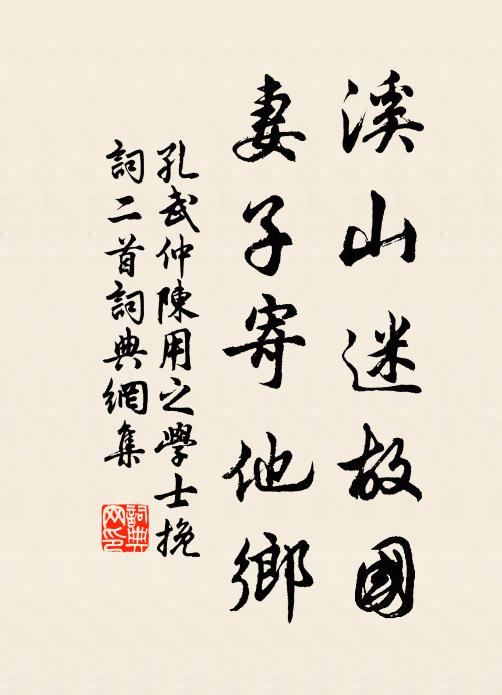 溪山迷故國
妻子寄他鄉
孔武仲陳用之學士挽
詞二首詞典網集
詞典網印